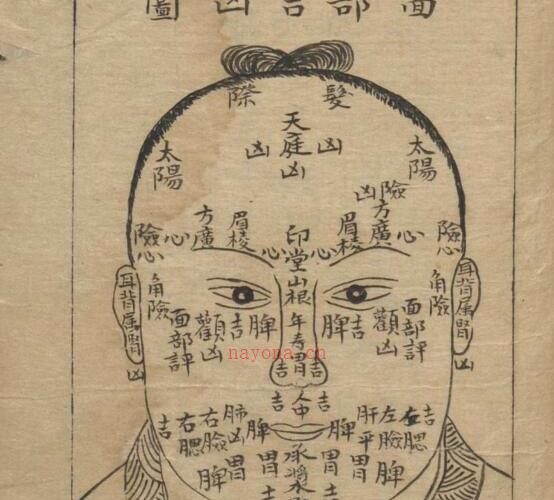 圖凶吉部面
髮際
天庭
凶
凶
凶
太陽
太陽
險
凶
方廣
方廣
眉棱
眉棱
心
心
心
心
險
險
心
印堂
山根
年壽
胃
角險
角險
耳背属腎
耳背属腎
凶
凶
面部評
面部評
顴凶
顴凶
吉
吉
脾
脾
nayona.cn
吉
吉
吉
吉
人中
承將
吉
右腮
右臉
脾
肺凶
胃
脾
胃
吉
脾
胃
吉
肝平
胃
左臉
脾
左腮
吉